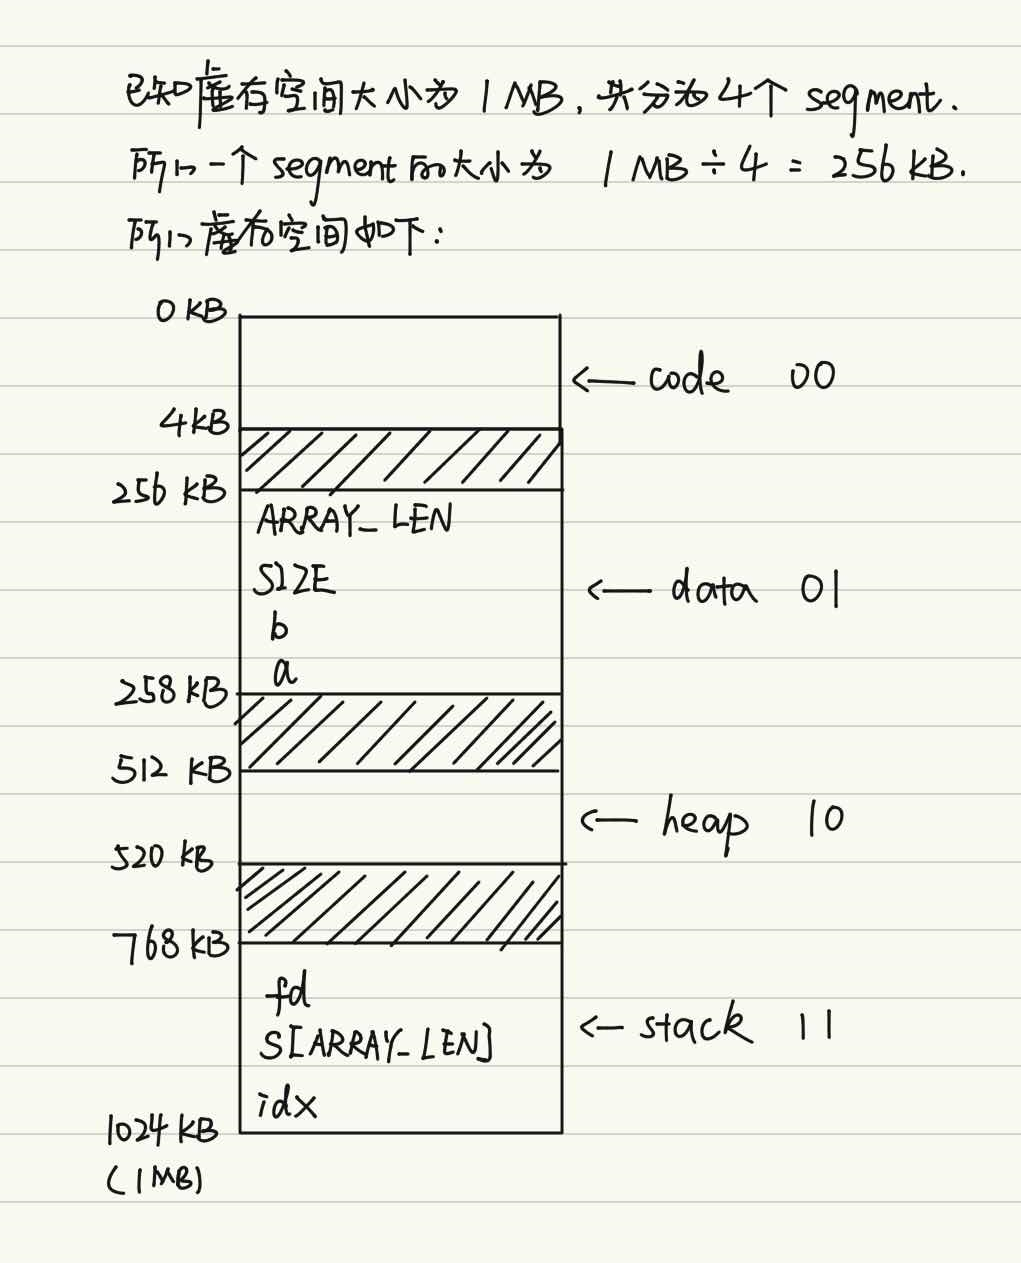 已知虚存空间大小为 1 MB, 共分为4个 segment.
所以一个 segment 的大小为 1 MB ÷ 4 = 256 KB.
所以虚存空间如下:
0 KB
← code 00
4 KB
256 KB
ARRAY_LEN
SIZE
← data 01
b
a
258 KB
512 KB
← heap 10
520 KB
768 KB
fd
← stack 11
S[ARRAY_LEN]
idx
1024 KB
(1 MB)